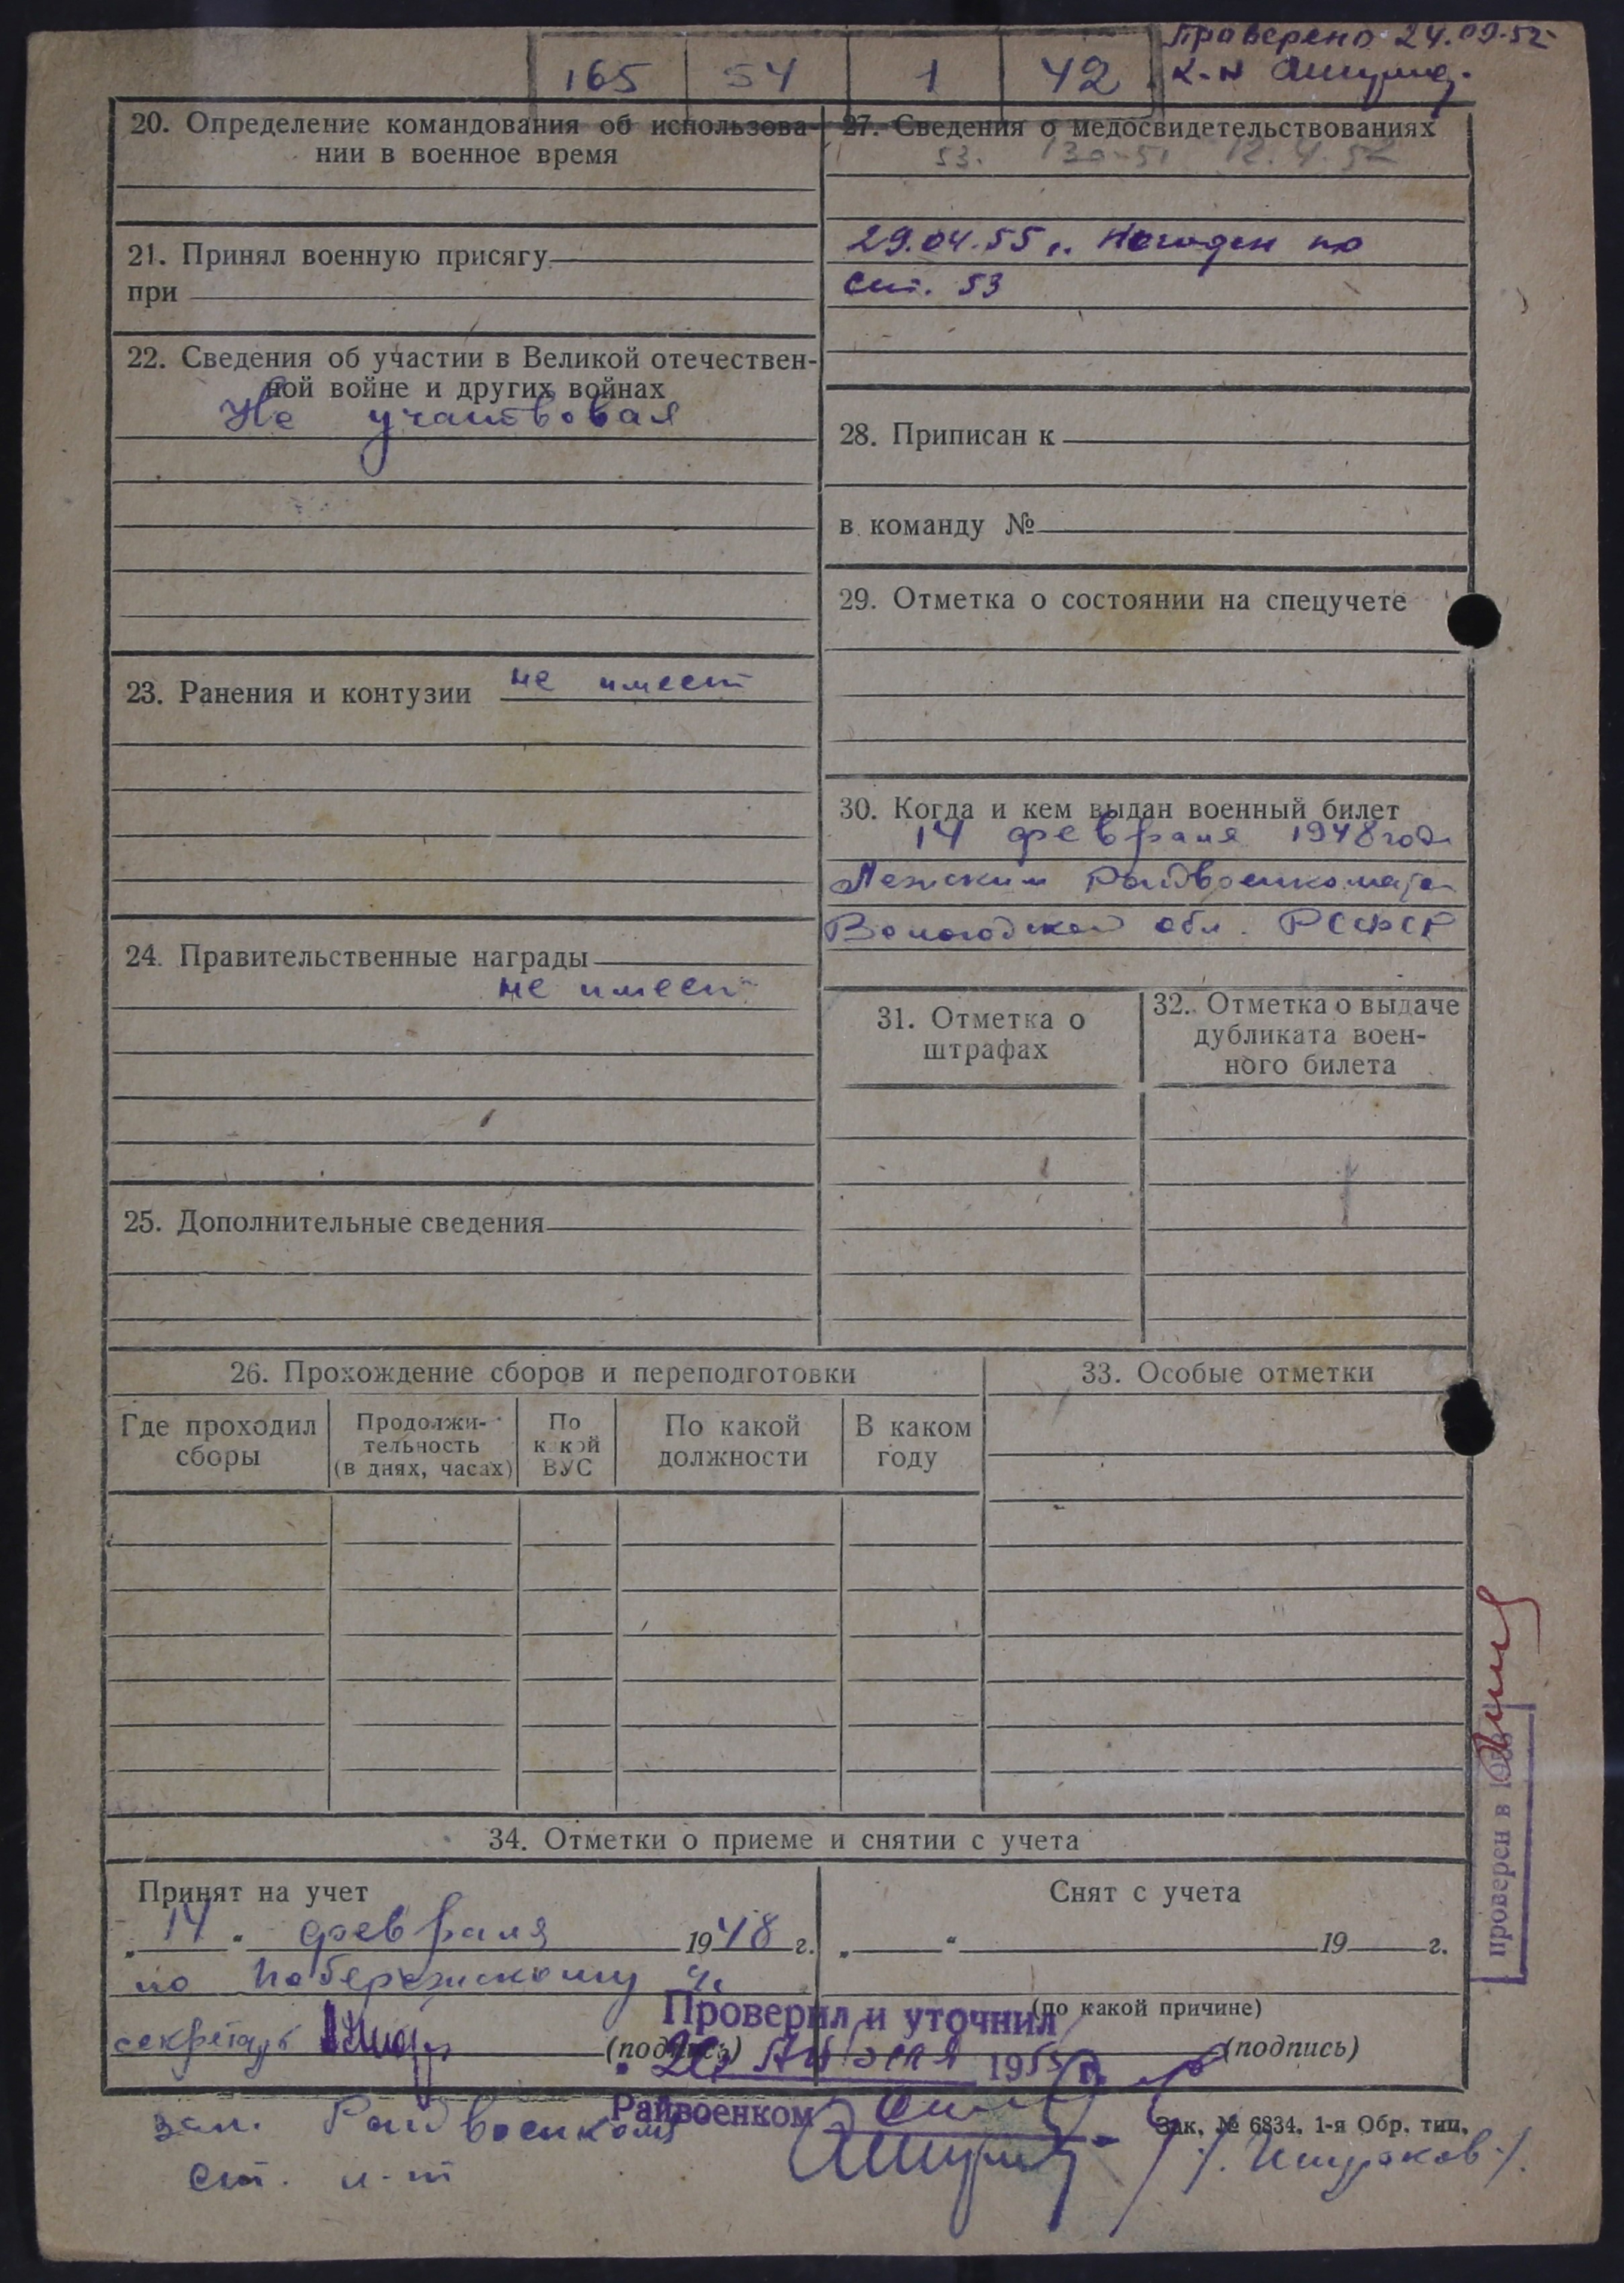 Проверено 24.09.52
165 54 1 42
20. Определение командования об использова-
нии в военное время
21. Принял военную присягу
при
22. Сведения об участии в Великой отечествен-
ной войне и других войнах
Не участвовал
23. Ранения и контузии не имеет
24. Правительственные награды
не имеет
25. Дополнительные сведения
27. Сведения о медосвидетельствованиях
53. 12.4.52
29.04.55 г. Негоден по
ст. 53
28. Приписан к
в команду №
29. Отметка о состоянии на спецучете
30. Когда и кем выдан военный билет
14 февраля 1948 год
Лежским Райвоенкомато
Вологодской обл. РСФСР
31. Отметка о
штрафах
32. Отметка о выдаче
дубликата воен-
ного билета
26. Прохождение сборов и переподготовки
Где проходил
сборы
Продолжи-
тельность
(в днях, часах)
По
какой
ВУС
По какой
должности
В каком
году
33. Особые отметки
34. Отметки о приеме и снятии с учета
Принят на учет
„14“ февраля 1948 г.
по
секретарь
(подпись)
Снят с учета
„ “ 19 г.
(по какой причине)
(подпись)
Проверил и уточнил
195 г.
Райвоенком
зам. Райвоенкома
ст. л-т
Зак. № 6834. 1-я Обр. тип.
проверен в 195